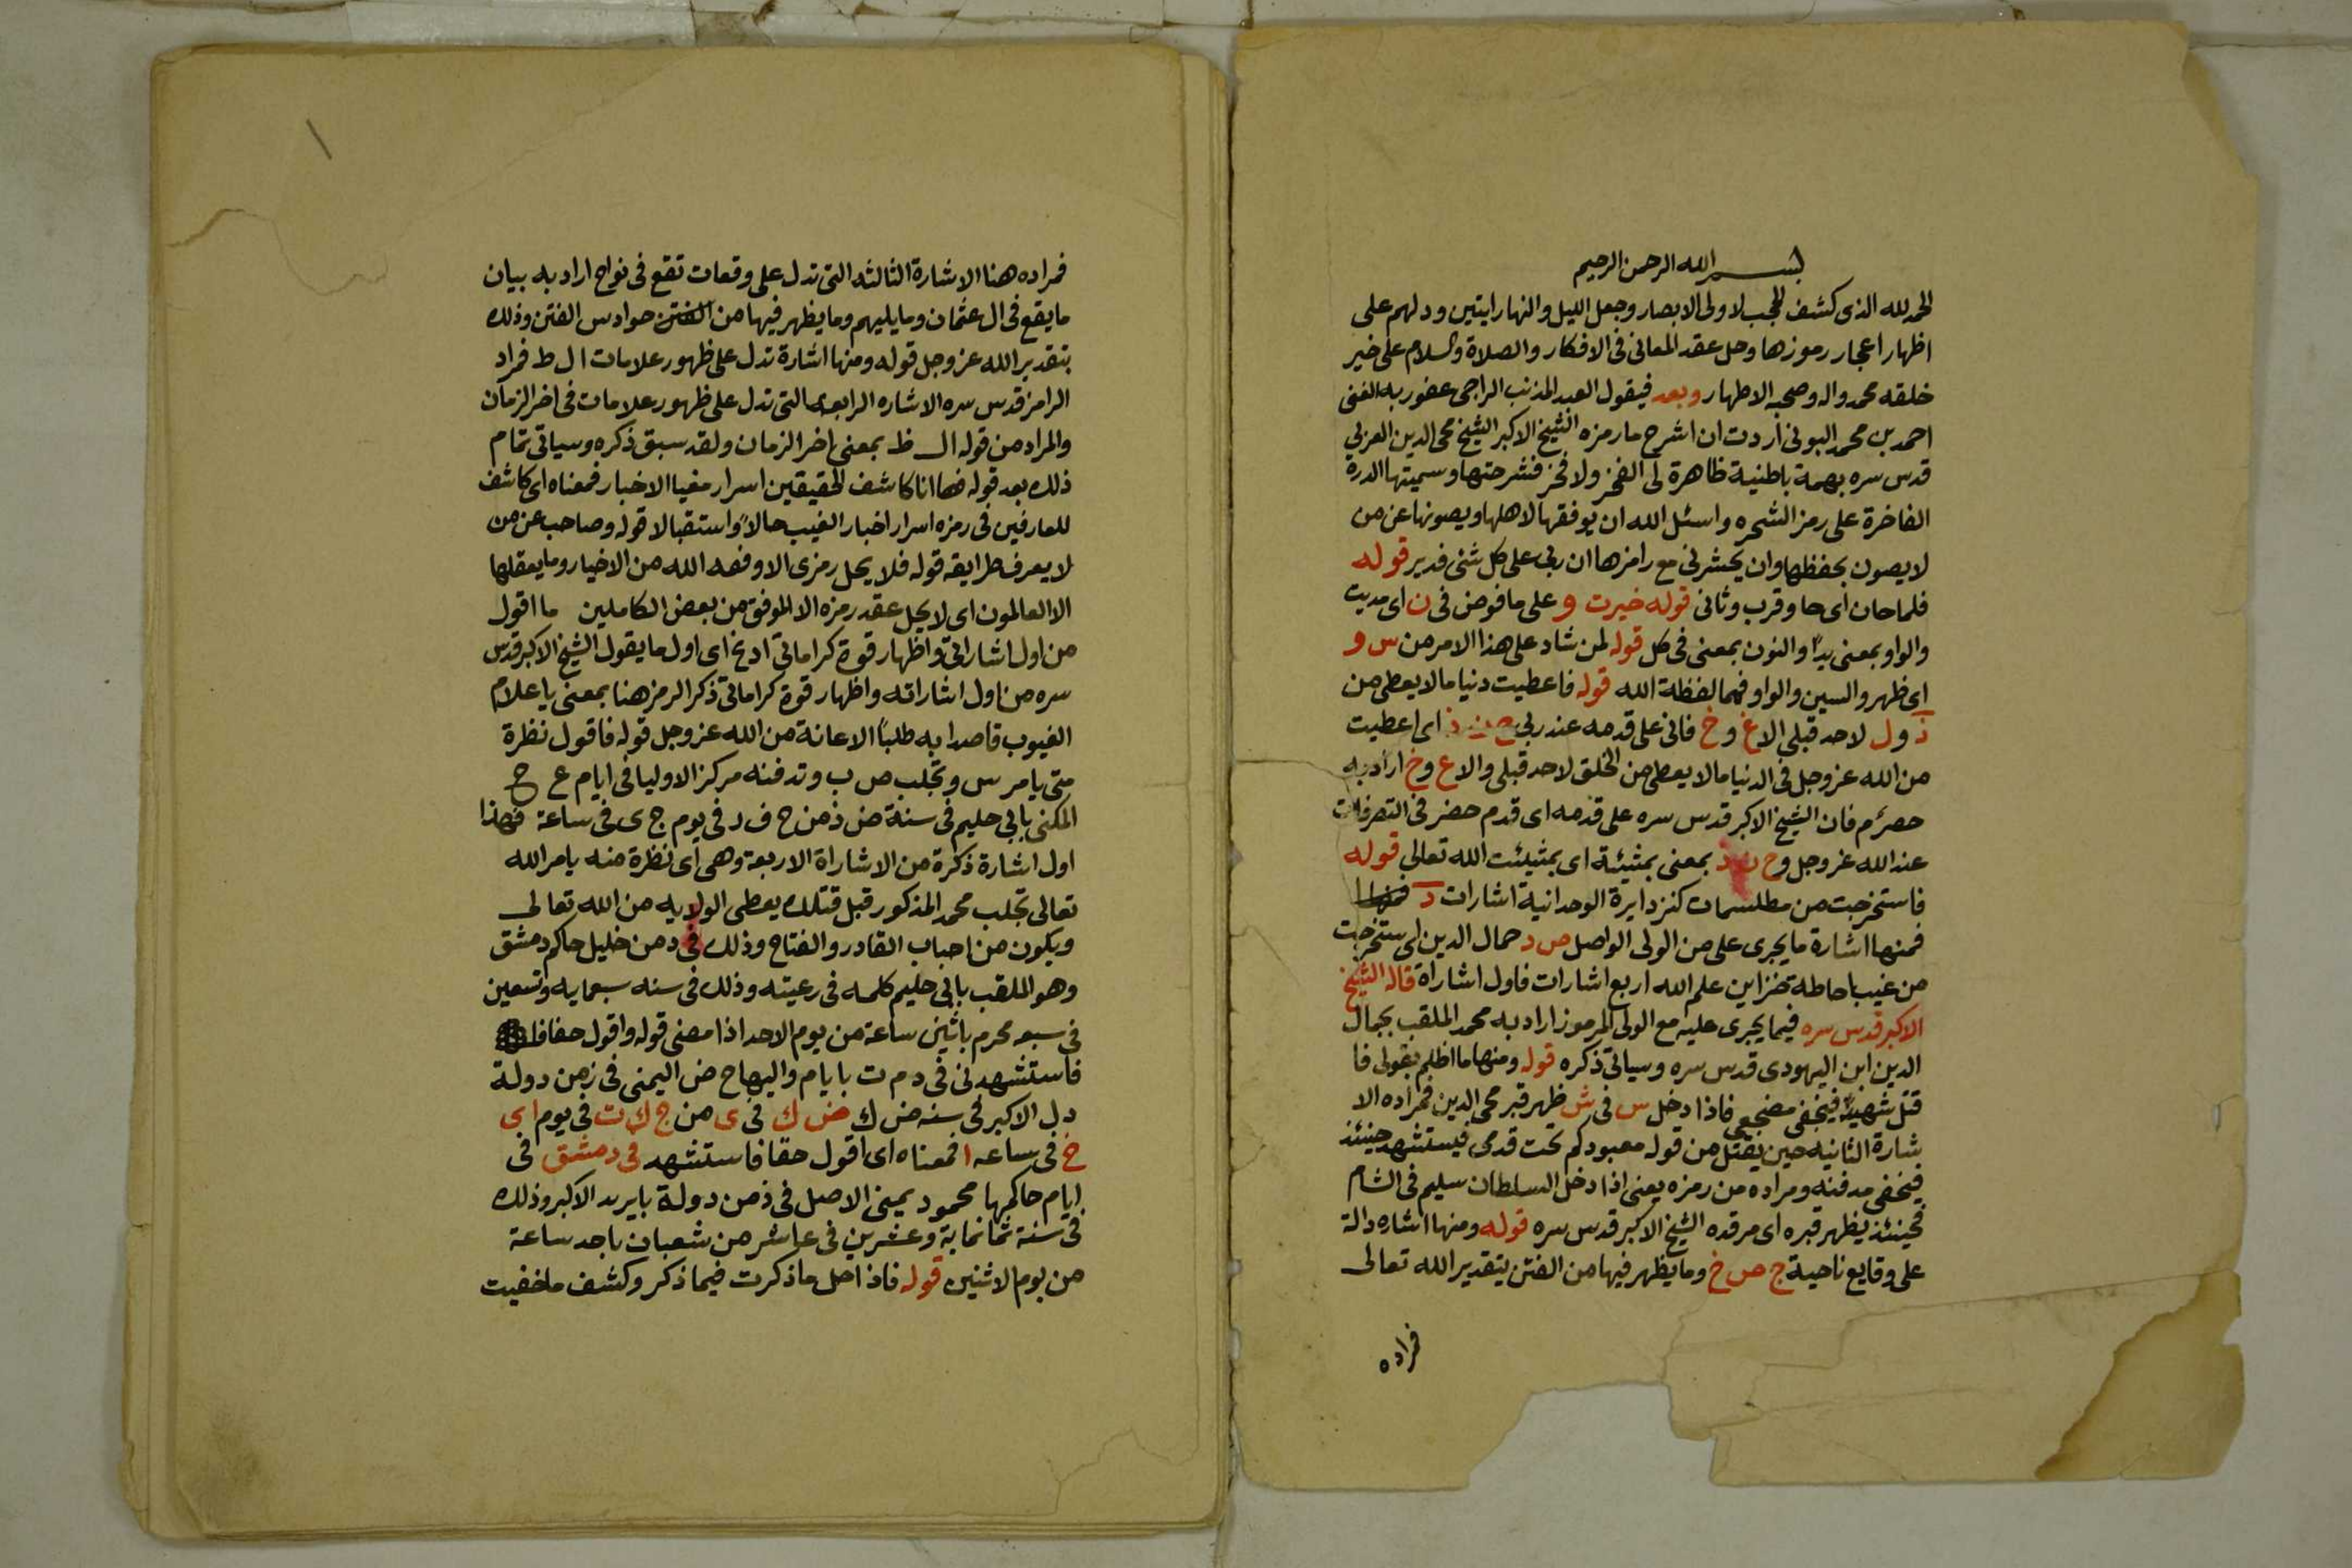 بسم الله الرحمن الرحيم
الحمد لله الذى كشف الحجب لاولى الابصار وجعل الليل والنهار ايتين ودلهم على
اظهار اعجار رموزها وحل عقد المعانى فى الافكار والصلاة والسلام على خير
خلقه محمد واله وصحبه الاطهار وبعد فيقول العبد المذنب الراجى عفور به الغنى
احمد بن محمد البونى اردت ان اشرح ما رمزه الشيخ الاكبر الشيخ محى الدين العربي
قدس سره بهمة باطنية ظاهرة لى الفخر ولا فخر فشرحتها وسميتها الدرة
الفاخرة على رمز الشجره واسئل الله ان يوفقها لاهلها ويصونها عن من
لا يصون بحفظها وان يحشرنى مع رامزها ان ربى على كل شئى قدير قوله
فلما حان اى حا وقرب وثانى قوله خيرت و على ما فوض فى ن اى مديت
والواو بمعنى يدًا والنون بمعنى فى كل قوله لمن شاد على هذا الامر من س و
اى ظهر والسين والواو فهما لفظة الله قوله فاعطيت دنيا ما لا يعطى من
ذ ول لاحد قبلى الا غ و خ فانى على قدمه عند ربي اى اعطيت
من الله عز وجل فى الدنيا ما لا يعطى من الخلق لاحد قبلى والا ع و خ اراد به
حضرم فان الشيخ الاكبر قدس سره على قدمه اى قدم حضر فى التصرفات
عند الله عز وجل و بمعنى بمثيئة اى بمثيئت الله تعالى قوله
فاستخرجت من مطلسمات كنز دايرة الوحدانية اشارات د
فمنها اشارة ما يجرى على من الولى الواصل ص د حمال الدين اى ستخرجت
من غيب احاطة خزاين علم الله اربع اشارات فاول اشاراة قاله الشيخ
الاكبر قدس سره فيما يجرى عليه مع الولى المرموز اراد به محمد الملقب بجمال
الدين ابن اليهودى قدس سره وسياتى ذكره قوله ومنها ما اظلم بقولى فا
قتل شهيدًا فيخفى مضجعى فاذا دخل س فى ش ظهر قبر محى الدين فمراده الا
شارة الثانيه حين يقتل من قوله معبودكم تحت قدمى فيستشهد حينئذ
فيخفى مدفنه ومراده من رمزه يعنى اذا دخل السلطان سليم فى الشام
فحينئذ يظهر قبره اى مرقده الشيخ الاكبر قدس سره قوله ومنها اشاره دالة
على وقايع ناحية ج ص خ وما يظهر فيها من الفتن بتقدير الله تعالى
فمراده
فمراده هنا الاشارة الثالثه التى تدل على وقعات تقع فى نواح اراد به بيان
ما يقع فى ال عثمان وما يليهم وما يظهر فيها من الفتن حوادس الفتن وذلك
بتقدير الله عز وجل قوله ومنها اشارة تدل على ظهور علامات ا ل ط فمراد
الرامز قدس سره الاشاره الرابعه التى تدل على ظهور علامات فى اخر الزمان
والمراد من قوله ال ظ بمعنى اخر الزمان ولقد سبق ذكره وسياتى تمام
ذلك بعد قوله فها انا كاشف للحقيقين اسرار مغيبا الاخبار فمعناه اى كاشف
للعارفين فى رمزه اسرار اخبار الغيب حالا واستقبالا قوله وصاحب عن من
لا يعرف طرايقه قوله فلا يحل رمزى الا وفقه الله من الاخيار وما يعقلها
الا العالمون اى لا يحل عقد رمزه الا الموفق من بعض الكاملين ما اقول
من اول اشاراتى واظهار قوة كراماتى اد يخ اى اول ما يقول الشيخ الاكبر قدس
سره من اول اشاراته واظهار قوة كراماتى ذكر الرمز هنا بمعنى يا علام
الغيوب قاصدا به طلبًا الاعانة من الله عز وجل قوله فاقول نظرة
متى يا مر س و تجلب ص ب و تدفنه مركز الاوليا فى ايام ع ح
المكنى بابي حليم فى سنة ض ذ من ح ف د فى يوم ج ى فى ساعة فهذا
اول اشارة ذكرة من الاشاراة الاربعة وهى اى نظرة منه يامر الله
تعالى تجلب محمد المذكور قبل قتلك يعطى الولايه من الله تعالى
ويكون من احباب القادر والفتاح وذلك فى د من خليل حاكم دمشق
وهو الملقب بابى حليم كلمه فى رعيته وذلك فى سنه سبعمايه وتسعين
فى سبعه محرم باثنين ساعة من يوم الاحد اذا مضى قوله واقول حقا فا
فاستشهدنى فى د م ت با يام واليها ح ض اليمنى فى زمن دولة
دل الاكبر فى سنه ض ك ض ك فى ى من ج ك ت فى يوم اى
خ فى ساعه ا فمعناه اى اقول حقا فاستشهد فى دمشق فى
ايام حاكمها محمود يمينى الاصل فى ذمن دولة بايريد الاكبر وذلك
فى سنة ثمانماية وعشرين فى عاشر من شعبان باحد ساعة
من يوم الاثنين قوله فاذا حل ما ذكرت فيما ذكر وكشف ما خفيت